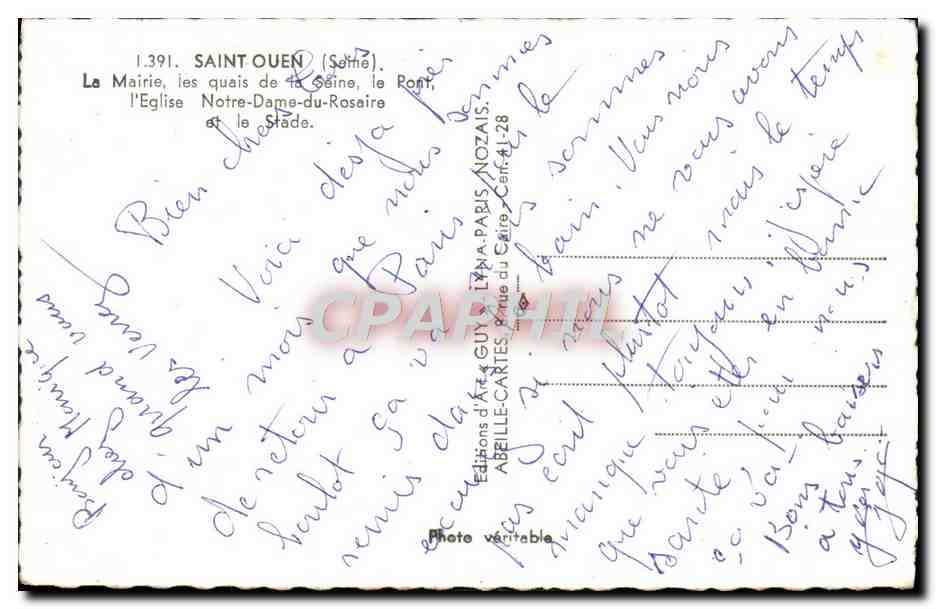 1.391. SAINT OUEN (Seine).
La Mairie, les quais de la Seine, le Pont,
l'Eglise Notre-Dame-du-Rosaire
et le Stade.
Editions d'Art GUY LYNA-PARIS NOZAIS.
ABEILLE-CARTES 8, rue du Caire - Cen. 41-28
Photo véritable
CPAPHIL
Bien chers tous
Voici déjà près
d'un mois que nous sommes
de retour à Paris, sur le
boulot ça va
remis dans le bain. Vous nous
si nous ne vous avons
pas écrit plutot mais le temps
manque toujours j'espère
que vous etes en bonne
santé pour nous
ça va.
Bons baisers
à tous.
Bonjour
chez
quand vous
les verrez